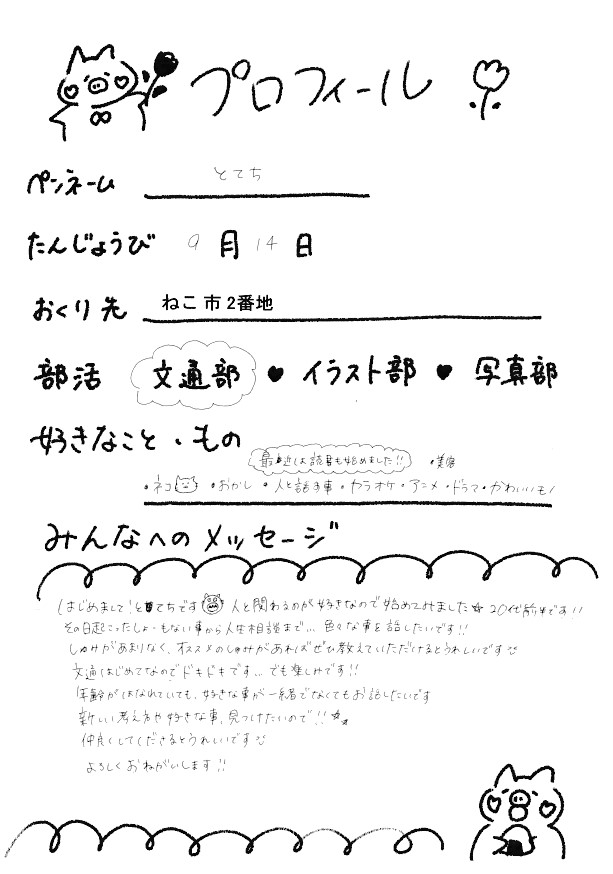 プロフィール
ペンネーム とてち
たんじょうび 9月14日
おくり先 ねこ市2番地
部活 文通部 ♥ イラスト部 ♥ 写真部
好きなこと・もの
最近は読書も始めました!! ・美容
・ネコ ・おかし ・人と話す事 ・カラオケ ・アニメ ・ドラマ ・かわいいモノ
みんなへのメッセージ
はじめまして!とてちです 人と関わるのが好きなので始めてみました★ 20代前半です!!
その日起こったしょーもない事から人生相談まで... 色々な事を話したいです!!
しゅみがあまりなく、オススメのしゅみがあればぜひ教えていただけるとうれしいです
文通はじめてなのでドキドキです... でも楽しみです!!
年齢がはなれていても、好きな事が一緒でなくてもお話したいです
新しい考え方や好きな事、見つけたいので!!
仲良くしてくださるとうれしいです
よろしくおねがいします!!